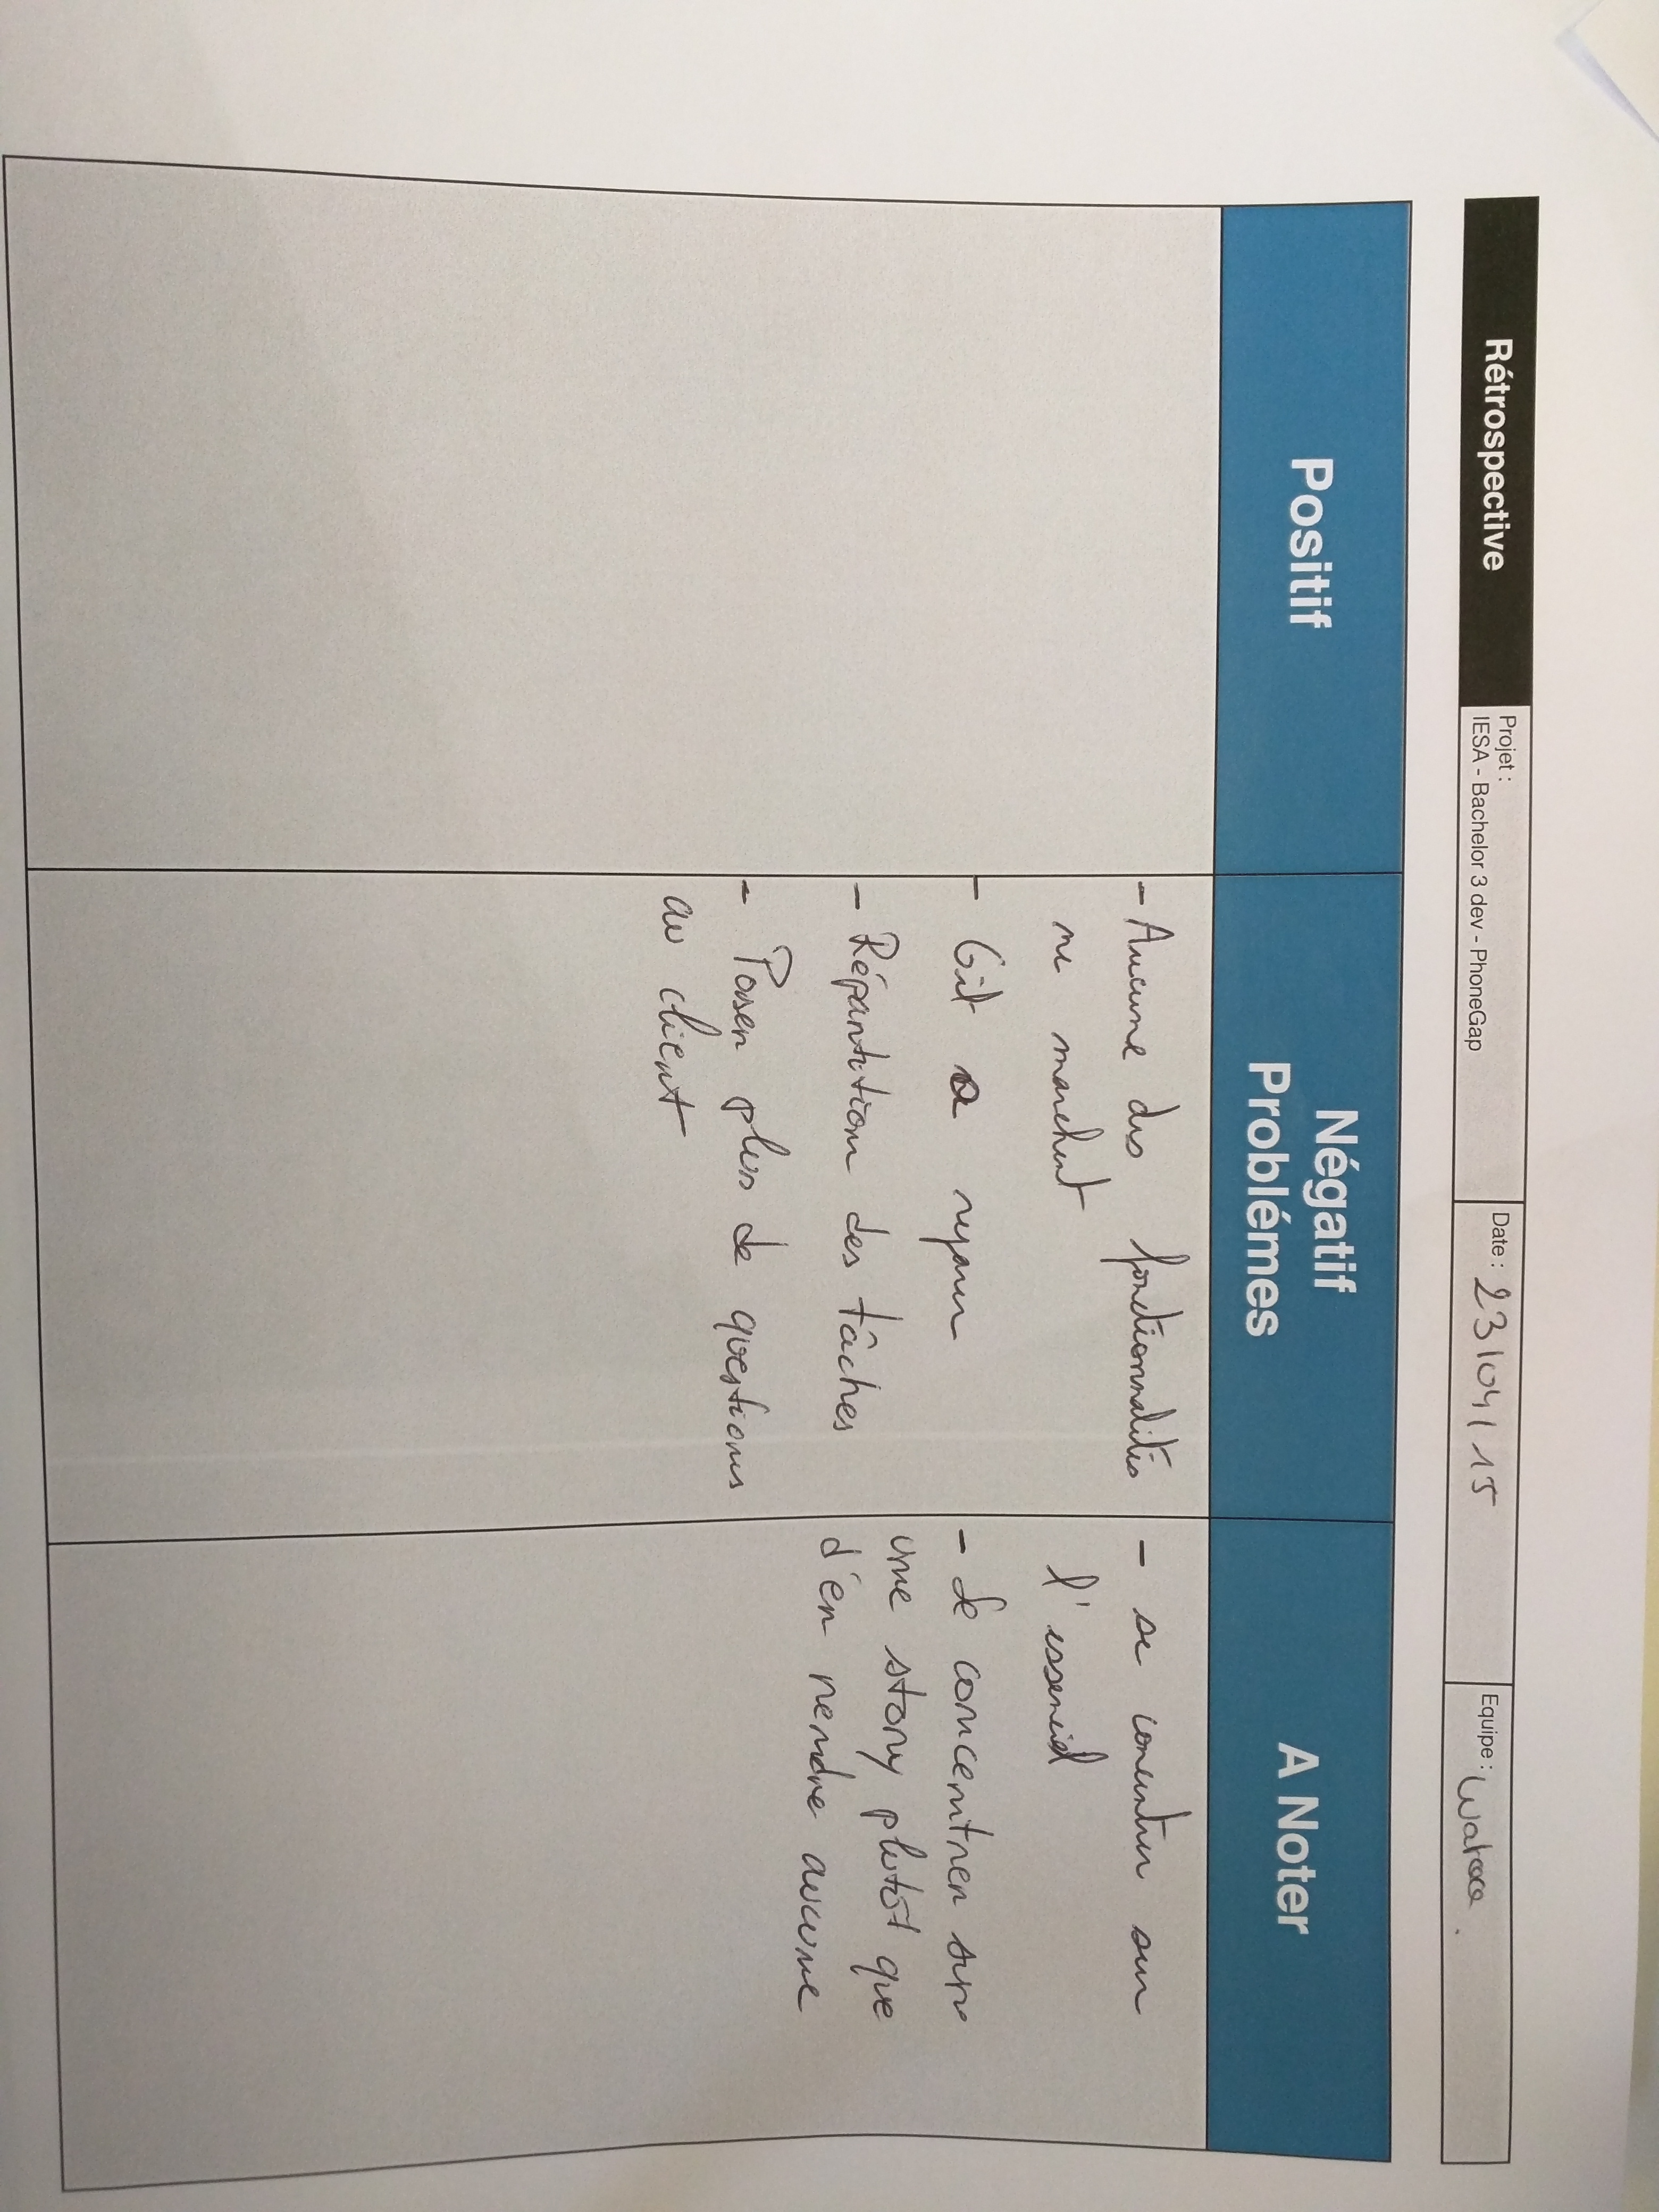 Rétrospective
Projet :
IESA - Bachelor 3 dev - PhoneGap
Date : 23/04/15
Equipe :
Positif
Négatif
Problémes
- Aucune des fonctionnalités
ne marchent
- Git a
- Répartition des tâches
- Poser plus de questions
au client
A Noter
- se concentrer sur
l'essenciel
- Se concentrer sur
une story plutôt que
d'en rendre aucune